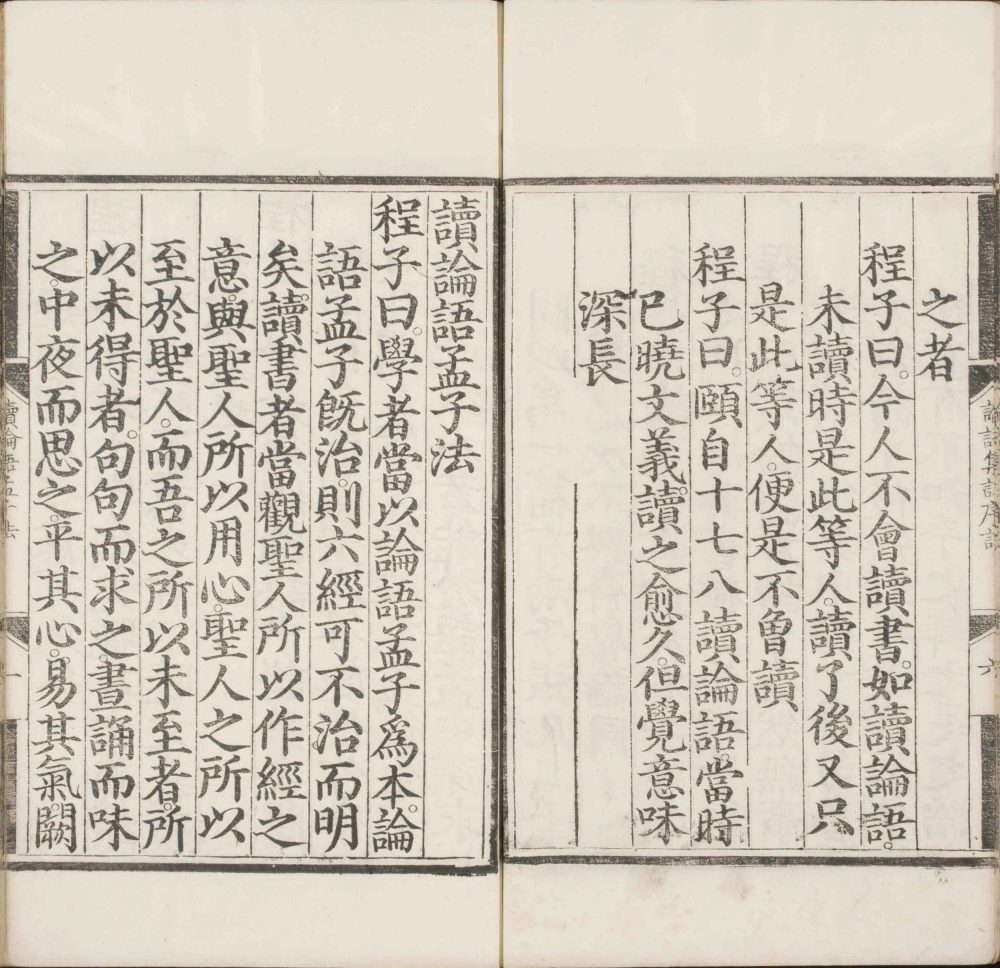 之者
程子曰。今人不會讀書。如讀論語。
未讀時是此等人。讀了後又只
是此等人。便是不曾讀
程子曰。頤自十七八讀論語。當時
已曉文義。讀之愈久。但覺意味
深長
讀論語孟子法
程子曰。學者當以論語孟子爲本。論
語孟子旣治。則六經可不治而明
矣。讀書者當觀聖人所以作經之
意。與聖人所以用心。聖人之所以
至於聖人。而吾之所以未至者。所
以未得者。句句而求之。晝誦而味
之。中夜而思之。平其心。易其氣。闕
論語集註序說
六
讀論語孟子法
一